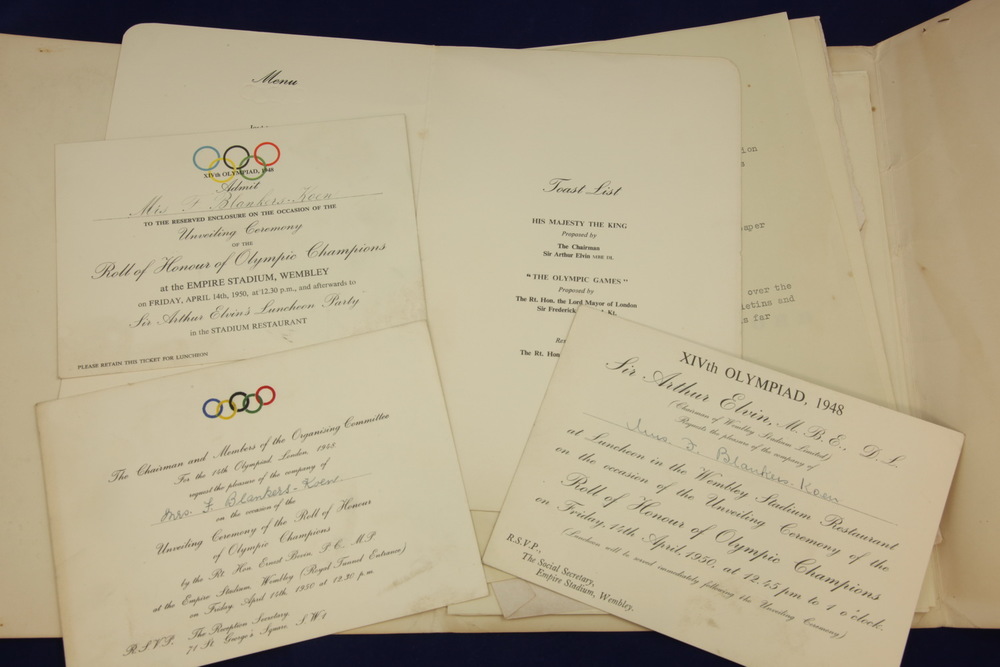 Menu
XIVth OLYMPIAD, 1948
Admit
F Blankers-Koen
TO THE RESERVED ENCLOSURE ON THE OCCASION OF THE
Unveiling Ceremony
OF THE
Roll of Honour of Olympic Champions
at the EMPIRE STADIUM, WEMBLEY
on FRIDAY, APRIL 14th, 1950, at 12.30 p.m., and afterwards to
Sir Arthur Elvin's Luncheon Party
in the STADIUM RESTAURANT
PLEASE RETAIN THIS TICKET FOR LUNCHEON
Toast List
HIS MAJESTY THE KING
Proposed by
The Chairman
Sir Arthur Elvin MBE DL
"THE OLYMPIC GAMES"
Proposed by
The Rt. Hon. the Lord Mayor of London
Sir Frederick
The Rt. Hon.
over the
far
The Chairman and Members of the Organising Committee
For the 14th Olympiad, London, 1948
request the pleasure of the company of
Mrs. F. Blankers-Koen
on the occasion of the
Unveiling Ceremony of the Roll of Honour
of Olympic Champions
by the Rt. Hon. Ernest Bevin, P.C., M.P.
at the Empire Stadium, Wembley (Royal Tunnel Entrance)
on Friday, April 14th, 1950 at 12.30 p.m.
R.S.V.P. The Reception Secretary,
71 St. George's Square, S.W.1
XIVth OLYMPIAD, 1948
Sir Arthur Elvin, M.B.E., D.L.
(Chairman of Wembley Stadium Limited)
Requests the pleasure of the company of
F. Blankers-Koen
at Luncheon in the Wembley Stadium Restaurant
on the occasion of the Unveiling Ceremony of the
Roll of Honour of Olympic Champions
on Friday, 14th April, 1950, at 12.45 pm to 1 o'clock.
(Luncheon will be served immediately following the Unveiling Ceremony)
R.S.V.P.,
The Social Secretary,
Empire Stadium, Wembley.